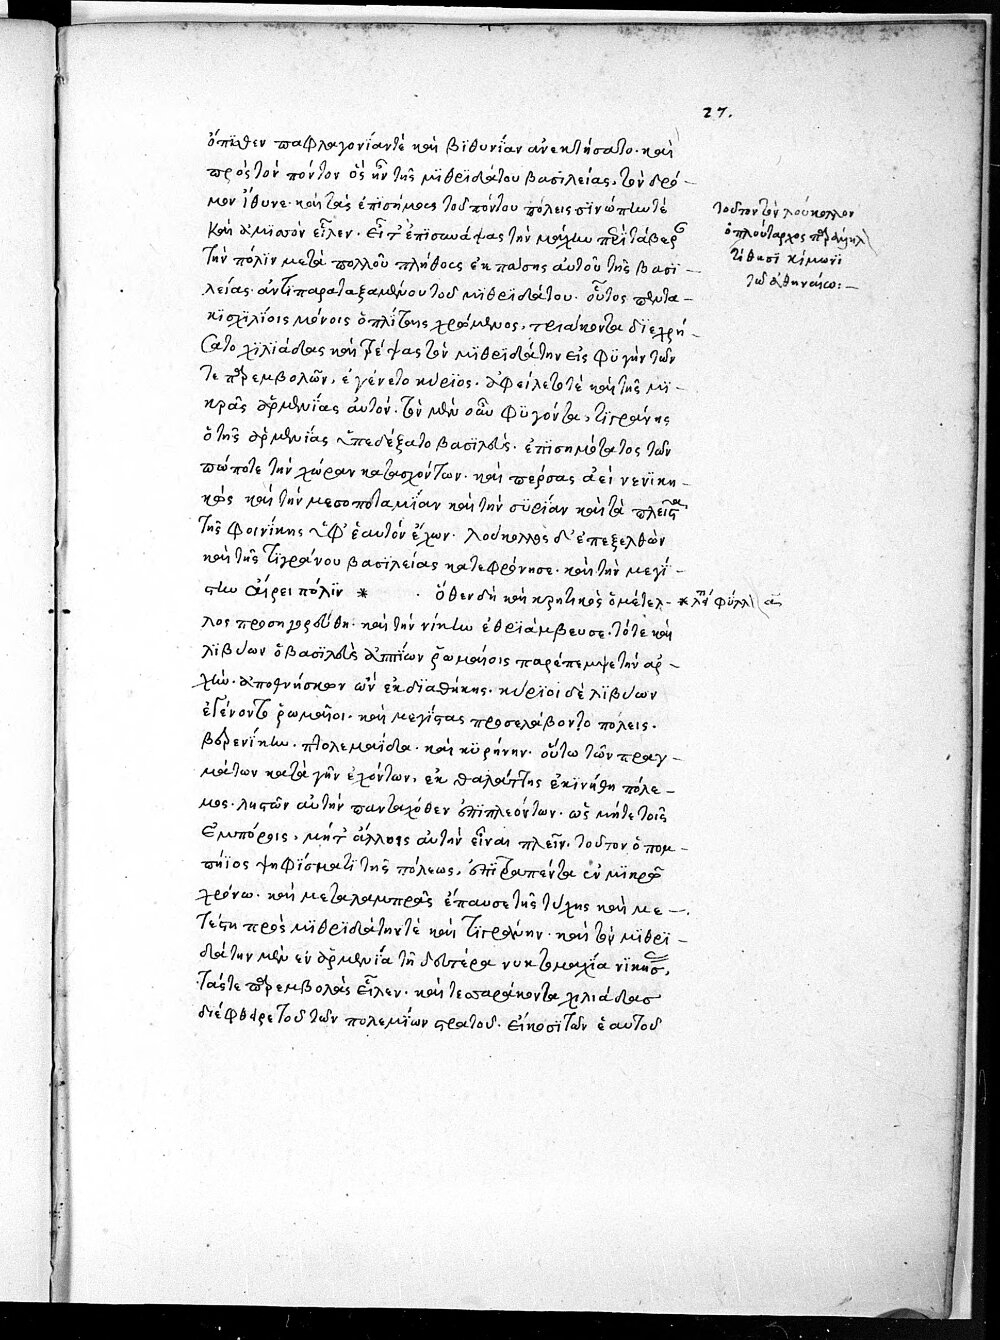 27.
ὄπισθεν παφλαγονίαν τὲ καὶ βϊθυνίαν ἀνεκτήσατο. καὶ
πρὸς τὸν πόντον ὃς ἦν τῆς μϊθριδάτου βασιλείας, τὸν δρό-
μον ἴθυνε. καὶ τὰς ἐπισήμους τοῦ πόντου πόλεις σϊνώπην τὲ
καὶ ἀμισὸν εἷλεν. εἶτ' ἐπισυνάψας την μάχην περὶ τὰ βερ
τὴν πόλϊν μετὰ πολλοῦ πλήθους ἐκ πάσης αὐτοῦ τῆς βασϊ-
λείας ἀντϊπαραταξαμένου τοῦ μϊθριδάτου. οὗτος πεντα-
κϊσχϊλίοις μόνοις ὁπλίταις χρώμενος, τριάκοντα δϊεχρή-
σατο χϊλϊάδας καὶ τρέψας τὸν μϊθριδάτην εἰς φϋγὴν τῶν
τε παρεμβολῶν, ἐγένετο κύριος. ἀφείλετο τὲ καὶ τῆς μϊ-
κρᾶς ἀρμενΐας αὐτόν. τὸν μὲν οὖν φϋγόντα, τϊγράνης
ὁ τῆς ἀρμενΐας ὑπεδέξατο βασϊλεὺς. ἐπισημότατος τῶν
πώποτε τὴν χώραν κατασχόντων. καὶ πέρσας ἀεὶ νενϊκη-
κὼς καὶ τὴν μεσοποταμΐαν καὶ τὴν σϋρίαν καὶ τὰ πλεῖστα
τῆς φοινίκης ὑφ' ἑαυτὸν ἔχων. λούκουλλος δ' ἐπεξελθὼν
καὶ τῆς τϊγράνου βασϊλείας κατεφρόνησε. καὶ τὴν μεγί-
στην αἱρεῖ πόλϊν * ὅθεν δὴ καὶ κρητικὸς ὁ μέτελ-
λος προσηγορεύθη. καὶ τὴν νίκην ἐθρϊάμβευσε. τότε καὶ
λϊβύων ὁ βασϊλεὺς ἀππΐων ῥωμαίοις παρέπεμψε τὴν ἀρ-
χὴν. ἀποθνήσκων ὢν ἐκ δϊαθήκης. κύριοι δὲ λϊβύων
ἐγένοντο ῥωμαῖοι. καὶ μεγίστας προσελάβοντο πόλεις.
βερενίκην. πτολεμαΐδα. καὶ κϋρήνην. οὕτω τῶν πραγ-
μάτων κατὰ γῆν ἐχόντων, ἐκ θαλάττης ἐκϊνήθη πόλε-
μος. ληστῶν αὐτὴν πανταχόθεν ἐπϊπλεόντων. ὡς μήτε τοῖς
ἐμπόροις, μήτ' ἄλλοις αὐτὴν εἶναι πλεῖν. τοῦτον ὁ πομ-
πήϊος ψηφΐσματϊ τῆς πόλεως, ἐπιτραπέντα ἐν μϊκρῶ
χρόνω. καὶ μεταλαμπρᾶς ἔπαυσε τῆς τύχης καὶ με-
τέστη πρὸς μϊθριδάτην τὲ καὶ τϊγράνην. καὶ τὸν μϊθρϊ-
δάτην μὲν ἐν ἀρμενΐα τῆ δευτέρα νυκτομαχΐα νϊκήσας,
τάς τε παρεμβολὰς εἷλεν. καὶ τεσσαράκοντα χϊλιάδας
διέφθειρε τοῦ τῶν πολεμΐων στρατοῦ. εἴκοσϊ τῶν ἑαυτοῦ
τοῦτον τὸν λούκουλλον
ὁ πλούταρχος παράλληλ
τίθησϊ κίμωνϊ
τῶ ἀθηναίω:-